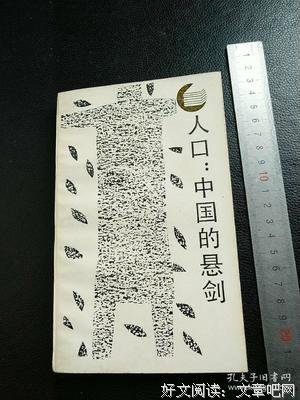 人口：中国的悬剑
1 2 3 4 5 6 7 8 9 10 1 2 3 4 5 6 7 8 9 20
孔夫子旧书网
好文阅读：文章吧网